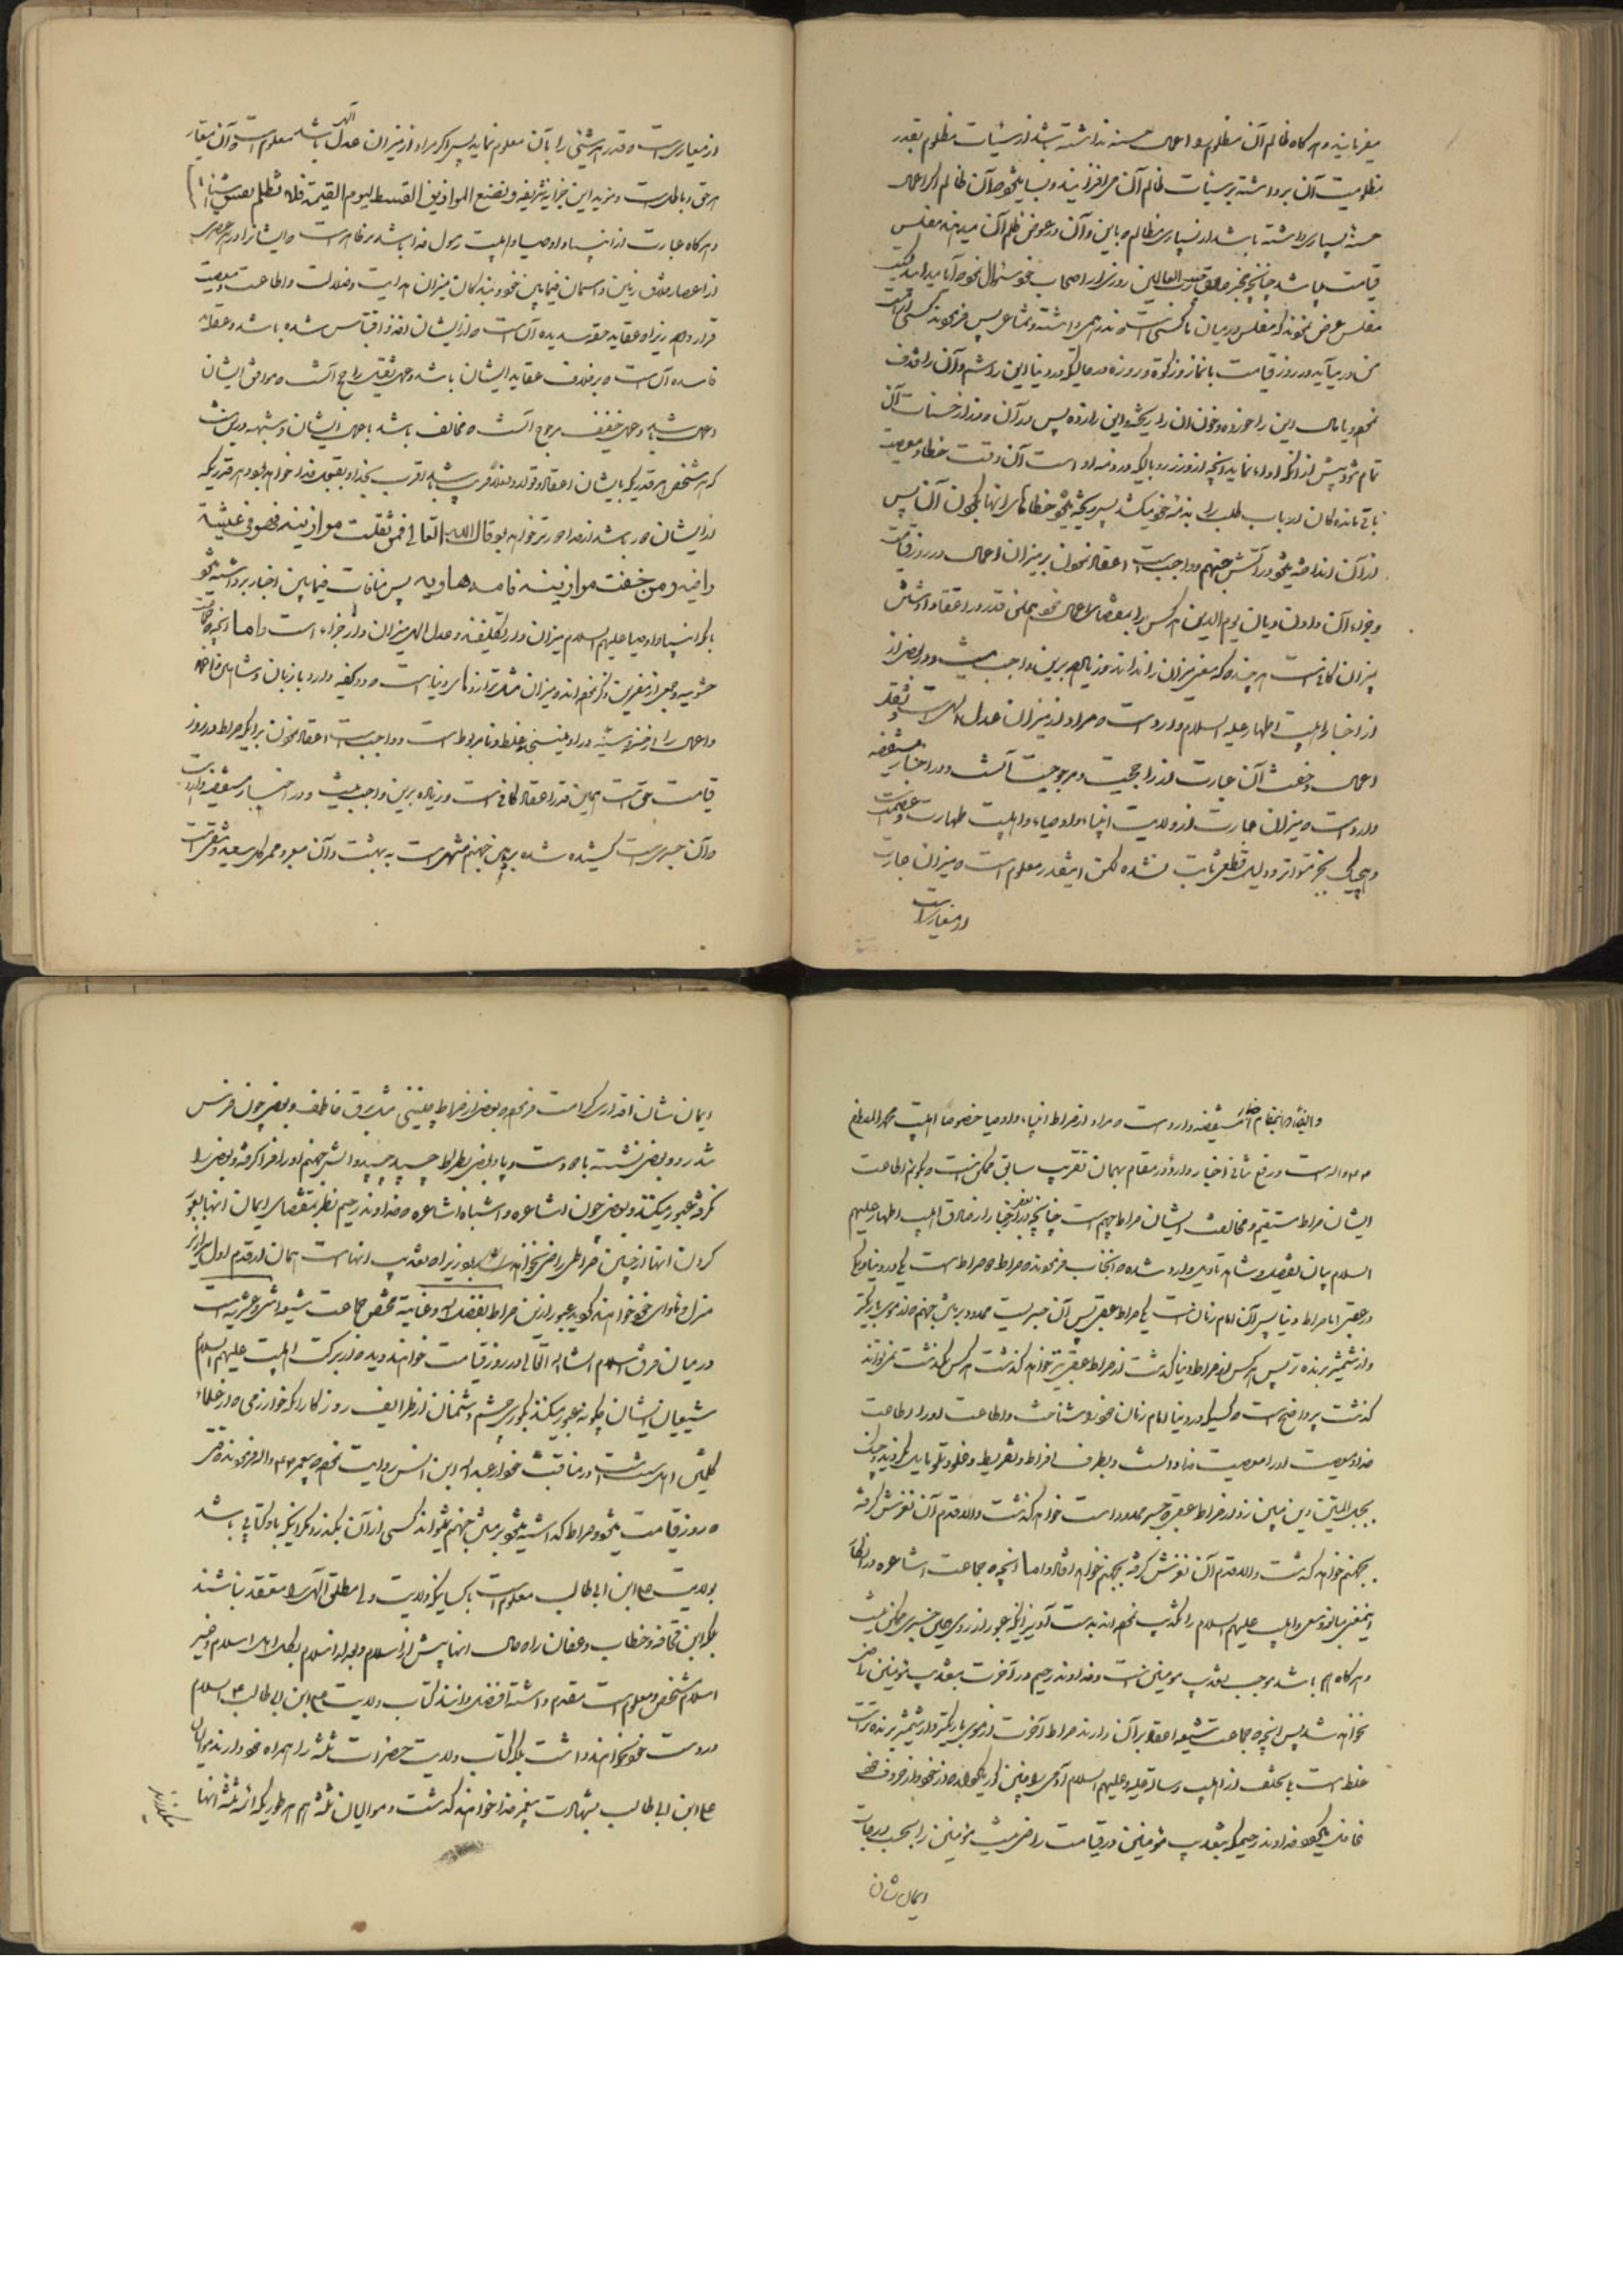 میفرمایند و هر گاه ظالم آن مظلوم را اعمال حسنه نداشته باشد از سیئات مظلوم بقدر
مظلومیت آن برداشته بر سیئات ظالم آن می‌افزایند و بسا میشود آن ظالم اگر اعمال
حسنه بسیاری داشته باشد از بسیاری مظالم باین و آن در عوض ظلم آن میدهند مفلس
قیامت میباشد چنانچه مخبر صادق رب العالمین روزی از اصحاب خود سئوال نمود آیا میدانید کیست
مفلس عرض نمودند که مفلس در میان ما کسی است که ندرهمی داشته و نه متاعی پس فرمودند کسی از امت
من می‌آید در روز قیامت با نماز و زکوة و روزه در حالیکه در دنیا این را شتم و آن را قذف
نموده و مال این را خورده و خون آن را ریخته و این را زده پس هر آن و از حسنات آن
تمام شود پیش از آنکه ادا نماید آنچه از وزر و وبالیکه در ذمه او است آن وقت خطا و معصیت
باقی مانده‌کان ارباب طلب را بذمه خود میکشد پس ریخته میشود خطاهای آنها بگردن آن پس
از آن انداخته میشود در آتش جهنم و واجب است اعتقاد نمودن بر میزان اعمال در روز قیامت
و جزاء آن و اول و پایان یوم الدین هر کس را بمقتضای اعمال خود همین قدر در اعتقاد داشتن
میزان کافی است هر چند که معنی میزان را نداند و زیاده بر این واجب نیست و در بعضی از
از اخبار اهلبیت اطهار علیه السلام وارد است و مراد از میزان عدل الهی است و ثقل
اعمال و خفت آن عبارت از راجحیت و مرجوحیت آنست و در اخبار مستفیضه
وارد است میزان عبارت از ولایت انبیاء و اوصیاء و اهلبیت طهارت و عصمت است
و هیچیک بخبر متواتر و دلیل قطعی ثابت نشده لکن اینقدر معلوم است میزان عبارت
از معیار است
از معیاری است و قدر هر شیئی را بآن معلوم نماید پس اگر مراد از میزان عدل الهی باشد معلوم است و آن معیار
هر حق و باطل است و مزید این خبر آیه شریفه و نضع الموازین القسط لیوم القیمة فلا تظلم نفس شیئا
و هر گاه عبارت از انبیا و اوصیا و اهلبیت رسول خدا باشد بر ظاهر است و ایشانرا در هر عصری
از اعصار خلاق زمین و آسمان فیمابین خود و بندکان میزان هدایت و ضلالت و اطاعت و معصیت
قرار داده زیرا و عقاید حقه سدیده آن است و از ایشان اخذ و اقتباس شده باشد و عقائد
فاسده آن است و بر خلاف عقاید ایشان باشد و عمل ثقیل راجح آنست و موافق ایشان
و عمل خفیف مرجوح آنست و مخالف باشد با عمل ایشان و شبهه در این نیست
که هر شخص هر قدریکه بایشان اعتقادا و قولا و فعلا قریب باشد اقرب بخدا و بقبول خدا خواهد بود هر قدریکه
از ایشان دور باشد از خدا دورتر خواهد بود قال الله تعالی فمن ثقلت موازینه فهو فی عیشة
راضیه و من خفت موازینه فامه هاویه پس منافات فیمابین اخبار برداشته میشود
بلکه انبیاء و اوصیا علیهم السلام میزان دار تکلیفند و عدل الهی میزان دار جزاء است و اما آنچه جماعت
حشویه و جمعی از مفسرین ذکر نموده‌اند و میزان مثل ترازوهای دنیا است و دو کفه دارد با زبان و شاهین
و اعمال را از حسنه و سیئه در او می‌سنجند غلط و نامربوط است و واجب است اعتقاد نمودن بر اینکه صراط در روز
قیامت حق است همین قدر اعتقاد کافی است و زیاده بر این واجب نیست و در اخبار مستفیضه وارد است
و آن جسری است کشیده شده بر روی جهنم منتهی است به بهشت و آن معبر و ممر کل سعید و شقی است
و ایضا در این مقام اخبار مستفیضه وارد است و مراد از صراط انبیاء و اوصیا خصوصا اهلبیت محمد المصطفی
در رفع تنافی اخبار وارده در مقام بهمان تقریب سابق ممکن است بگوئیم اطاعت
ایشان صراط مستقیم و مخالفت ایشان صراط جهیم است چنانچه در بعض اخبار از صادق اهلبیت اطهار علیهم
السلام بیان تفصیل و شاهد تأویل وارد شده و آنجناب فرمودند صراط دو صراط است یکی در دنیا و یکی
در عقبی اما صراط دنیا پس آن امام زمان است یکی صراط عقبی پس آن جسریست ممدود بر روی جهنم از موی باریکتر
و از شمشیر برنده‌تر پس هر کس از صراط دنیا گذشت از صراط عقبی نیز خواهد گذشت هر کس نگذشت نمیتواند
گذشت پر واضح است و کسیکه در دنیا امام زمان خود را شناخت و اطاعت او را اطاعت
خدا و معصیت او را معصیت خدا دانست و بطرف افراط و تفریط و غلو و تقصیر مایل نگردید و چنگ
بحبل المتین دین مبین زد از صراط عقبی و جسر ممدود است خواهد گذشت والا قدم آن لغزش کرفته
بجهنم خواهد گذشت والا قدم آن لغزش کرفته بجهنم خواهد افتاد و اما آنچه جماعت اشاعره در انکار
اینمعنی مبالغه و سعی و اهلبیت علیهم السلام را تکذیب نموده‌اند بدست آویز اینکه عبور از روی چنین جسری ممکن نیست
و هر گاه هم باشد موجب تعذیب مؤمنین است و خداوند رحیم در آخرت بتعذیب مؤمنین راضی
نخواهد شد پس آنچه جماعت شیعه اعتقاد بر آن دارند صراط آخرت از موی باریکتر و از شمشیر برنده‌تر است
غلط است
غافل خداوند رحیم که بتعذیب مؤمنین در قیامت راضی نیست مؤمنین را بحسب درجات
ایمان شان
ایمان شان اقتدار و کرامت فرموده بعضی از صراط چنینی مثل برق خاطف و بعضی چون فرس
تندرو و بعضی نشسته با دست و پا و بعضی بصراط چسپیده چسپیده آتش جهنم او را فرا کرفته و بعضی را
نگرفته عبور میکنند و بعضی چون اشاعره و اشباه اشاعره و خداوند رحیم نظر بمقتضای ایمان آنها بعبور
کردن آنها از چنین صراطی راضی نخواهد شد زیرا تعذیب آنهاست همان از قدم اول سرازیر
منزل و مأوای خود خواهند گردید عبور از این صراط بفضل الله و عنایته مخصوص جماعت شیعه اثنی عشریه است
در میان فرق اسلام انشاء الله تعالی در روز قیامت خواهند دید و از برکت اهلبیت علیهم السلام
شیعیان ایشان چگونه عبور میکنند بکوری چشم دشمنان از ظرایف روزگار آنکه خوارزمی و از علماء
اهل سنت است در مناقب خود از عبد الله ابن انس روایت نموده پیغمبر ص و اله فرمودند وقتی
و روز قیامت میشود و صراط گذاشته میشود بر روی جهنم نمیتواند کسی از آن بگذرد مگر اینکه با او کتابی باشد
بولایت علی ابن ابی طالب معلوم است با کسانیکه ولایت ولی مطلق الهی را معتقد نباشند
بلکه ابن قحافه و خطاب و عفان را حال آنها پیش از اسلام و بعد از اسلام بکل اهل اسلام و غیر
اسلام مشخص و معلوم است مقدم داشته افضل دانند کتاب ولایت علی ابن ابی طالب ع السلام
در دست خود نخواهند داشت بلکه کتاب ولایت حضرات ثلثه را همراه خود دارند موالیان
علی ابن ابی طالب بشهادت پیغمبر خدا خواهند گذشت و موالیان ثلثه هم هر طوریکه ائمه ثلثه آنها